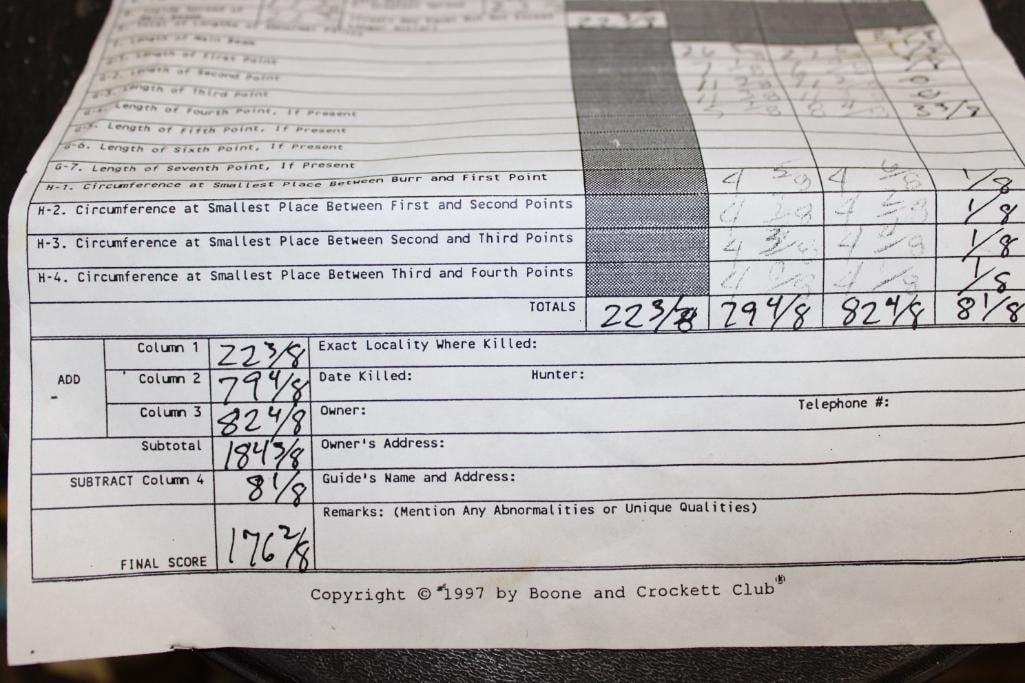 22 3/8
Length of Main Beam
Length of First Point
Length of Second Point
Length of Third Point
Length of Fourth Point, If Present 3 3/8
G-5. Length of Fifth Point, If Present
G-6. Length of Sixth Point, If Present
G-7. Length of Seventh Point, If Present
H-1. Circumference at Smallest Place Between Burr and First Point 4 5/8 4 4/8 1/8
H-2. Circumference at Smallest Place Between First and Second Points 4 4 1/8
H-3. Circumference at Smallest Place Between Second and Third Points 4 4 1/8
H-4. Circumference at Smallest Place Between Third and Fourth Points 4 0/8 4 1/8 1/8
TOTALS 22 3/8 79 4/8 82 4/8 8 1/8
ADD
Column 1 22 3/8 Exact Locality Where Killed:
Column 2 79 4/8 Date Killed: Hunter:
Column 3 82 4/8 Owner: Telephone #:
Subtotal 184 3/8 Owner's Address:
SUBTRACT Column 4 8 1/8 Guide's Name and Address:
Remarks: (Mention Any Abnormalities or Unique Qualities)
FINAL SCORE 176 2/8
Copyright © 1997 by Boone and Crockett Club®